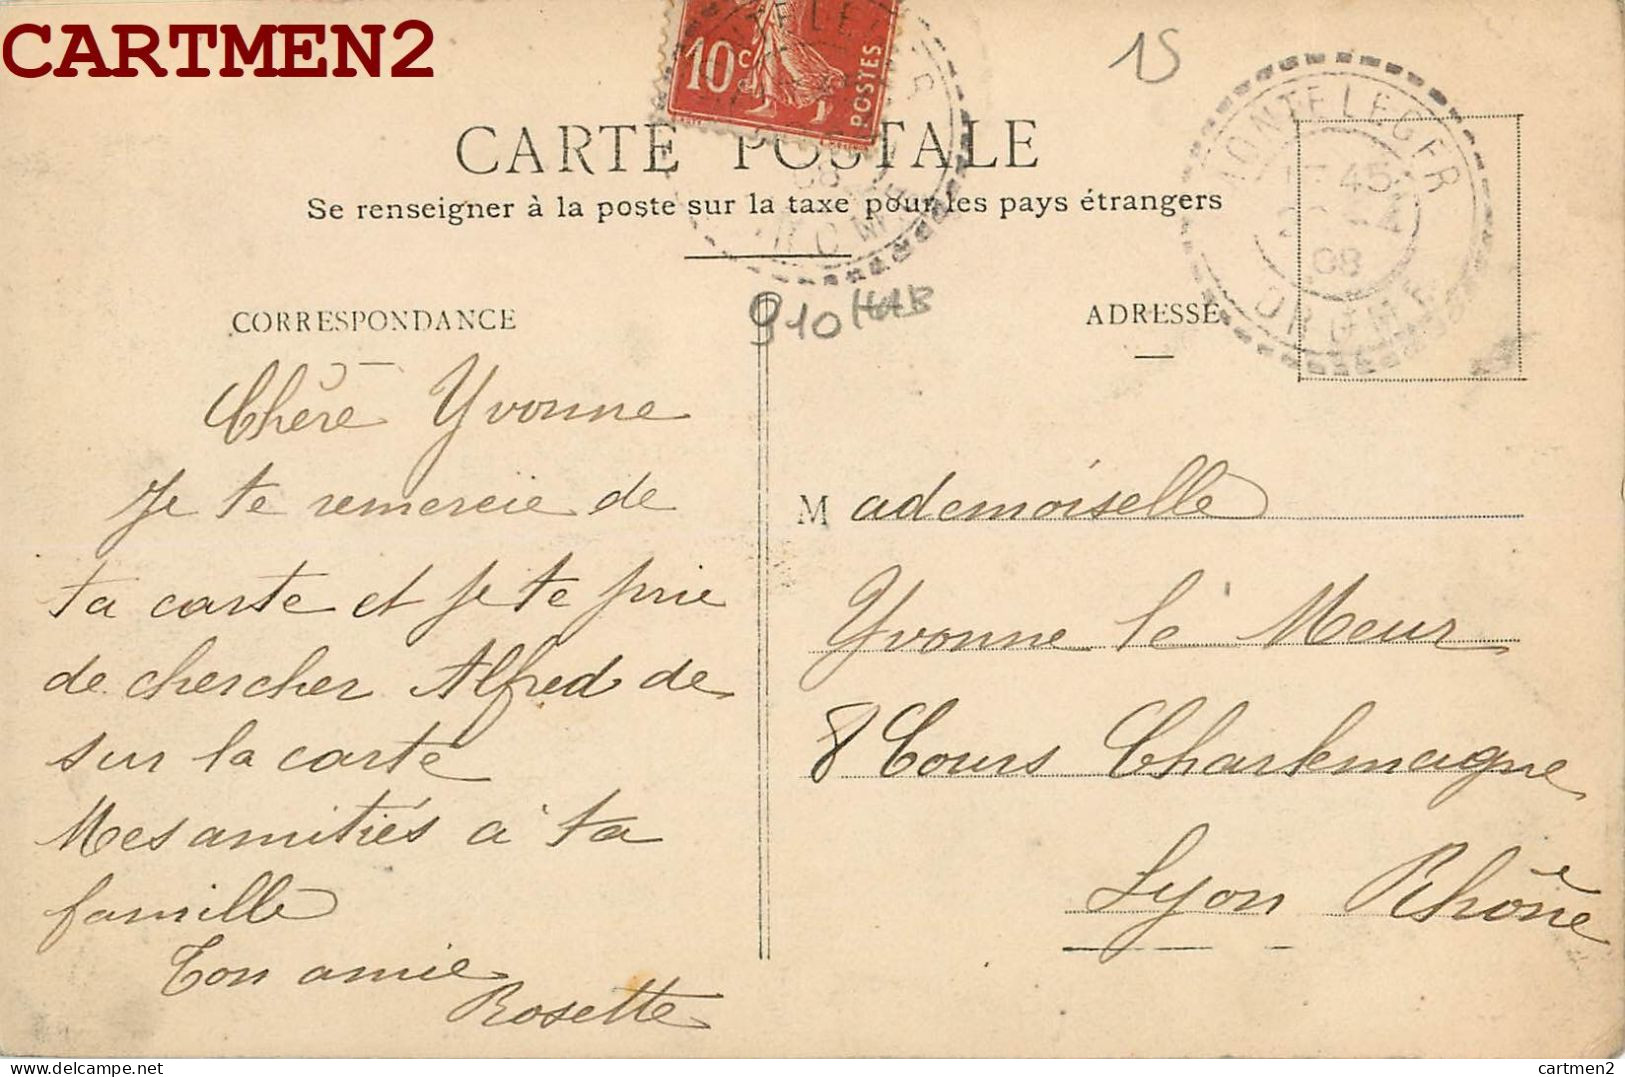 CARTMEN2
10c
POSTES
15
CARTE POSTALE
Se renseigner à la poste sur la taxe pour les pays étrangers
MONTELEGER
45
08
DROME
910
CORRESPONDANCE
ADRESSE
Chère Yvonne
Je te remercie de
ta carte et je te prie
de chercher Alfred de
sur la carte
Mes amitiés à ta
famille
Ton amie
Rosette
Mademoiselle
Yvonne le Meur
8 Cours Charlemagne
Lyon Rhône
cartmen2